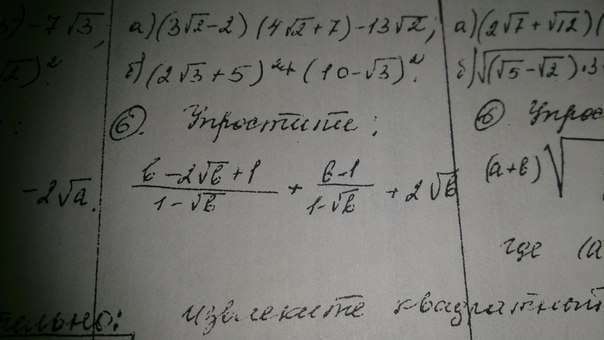 ) - 7√3; а) (3√2 - 2) (4√2 + 7) - 13√2; а) (2√7 + √12) (
)². б) (2√3 + 5)² + (10 - √3)². б) √(√5 - √2) · 3
⑥. Упростите: ⑥. Упрос
- 2√a. (b - 2√b + 1)/(1 - √b) + (b - 1)/(1 - √b) + 2√b (a+b)√
где (a
тельно: извлеките квадратный